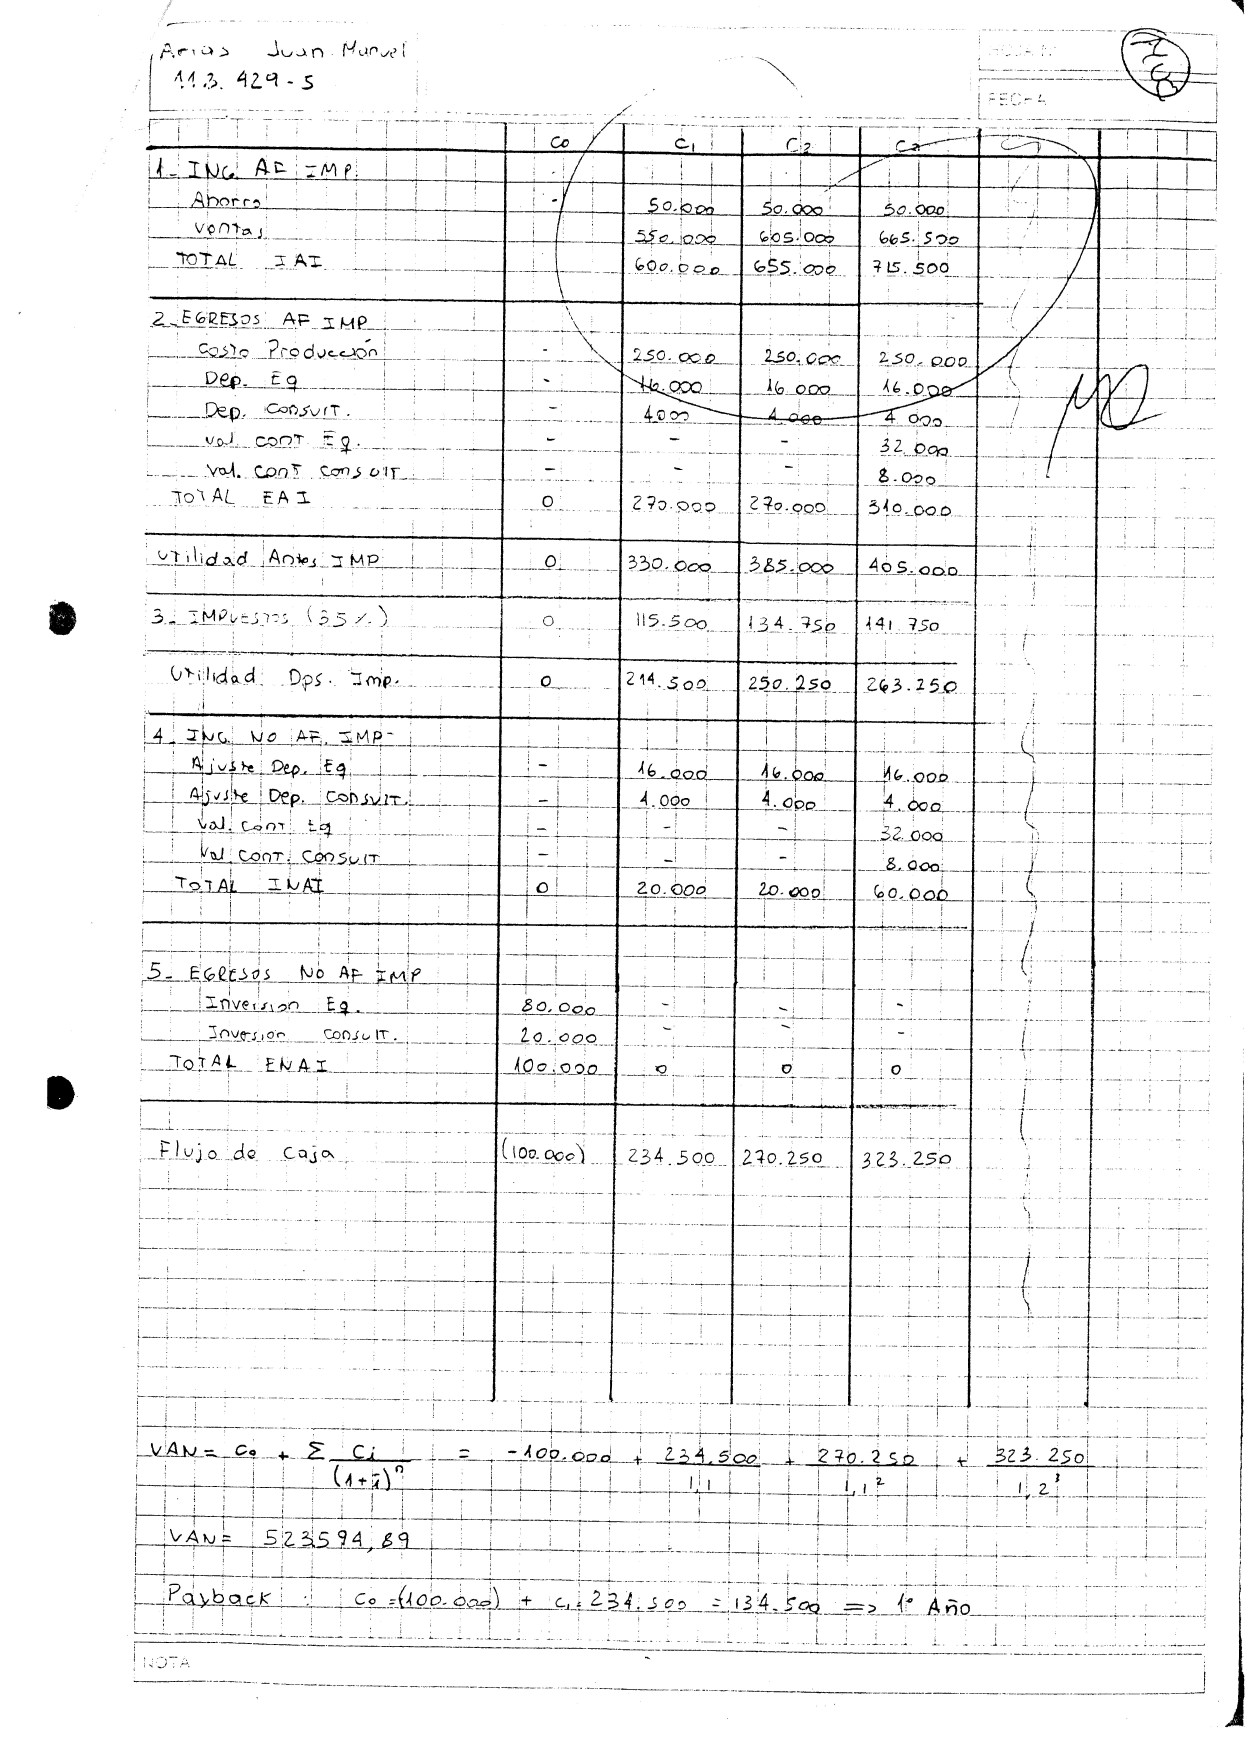 Arias Juan Manuel
113.429-5
HOJA Nº
FECHA
C0 C1 C2 C3
1_ ING. AF IMP
Ahorro - 50.000 50.000 50.000
Ventas 550.000 605.000 665.500
TOTAL IAI 600.000 655.000 715.500
2_ EGRESOS AF IMP
Costo Producción - 250.000 250.000 250.000
Dep. Eq - 16.000 16.000 16.000
Dep. Consult. - 4000 4.000 4.000
Val cont Eq. - - - 32.000
Val. cont consult - - - 8.000
TOTAL EAI 0 270.000 270.000 310.000
Utilidad Antes IMP 0 330.000 385.000 405.000
3_ IMPUESTOS (35%) 0 115.500 134.750 141.750
Utilidad Dps. Imp. 0 214.500 250.250 263.250
4_ ING NO AF. IMP
Ajuste Dep. Eq - 16.000 16.000 16.000
Ajuste Dep. Consult. - 4.000 4.000 4.000
Val. Cont Eq - - - 32.000
Val Cont. Consult - - - 8.000
TOTAL INAI 0 20.000 20.000 60.000
5_ EGRESOS NO AF IMP
Inversion Eq. 80.000 - - -
Inversion consult. 20.000 - - -
TOTAL ENAI 100.000 0 0 0
Flujo de Caja (100.000) 234.500 270.250 323.250
VAN = C0 + Σ Ci / (1+i)^n = -100.000 + 234.500 / 1,1 + 270.250 / 1,1² + 323.250 / 1,2³
VAN = 523594,89
Payback: C0 = (100.000) + C1: 234.500 = 134.500 => 1º Año
NOTA